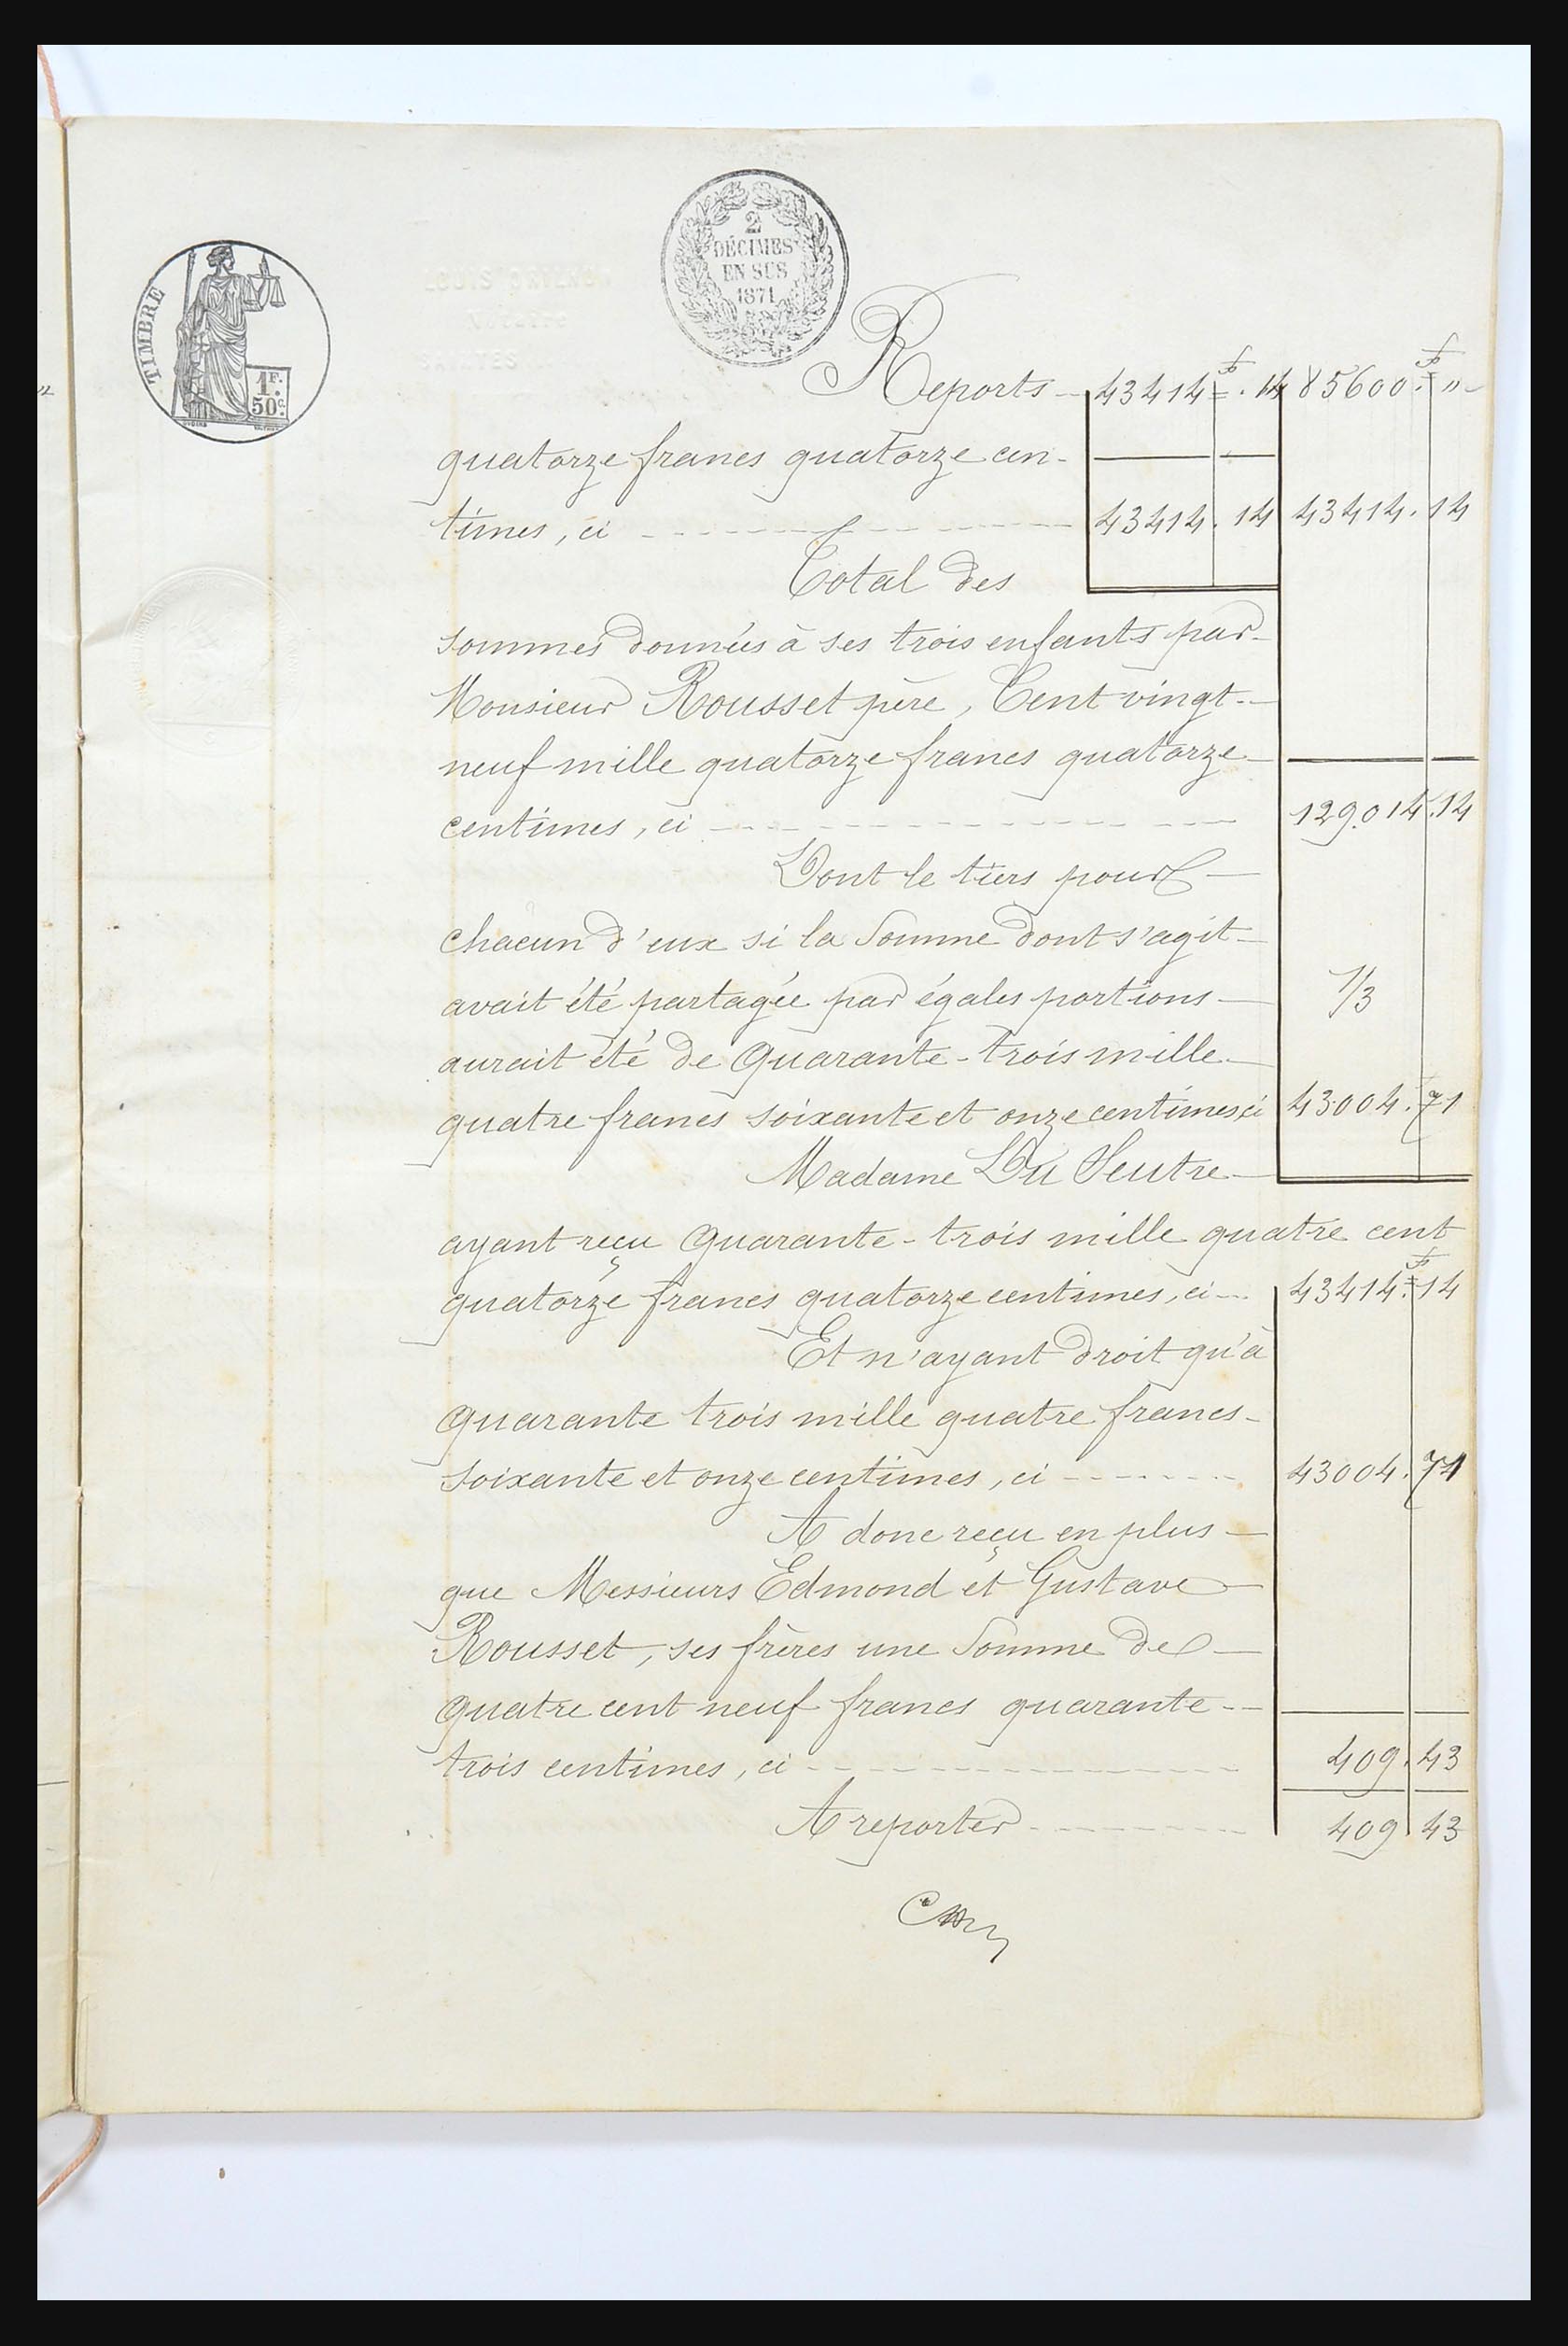 2
DÉCIMES
EN SUS
1871
TIMBRE
1F.
50c.
Reports - 43414f. 14 85600f. "
quatorze francs quatorze cen-
times, ci 43414. 14 43414. 14
Total des
sommes données à ses trois enfants par
Monsieur Rousset père, Cent vingt-
neuf mille quatorze francs quatorze
centimes, ci 129.014.14
Dont le tiers pour
chacun d'eux si la Somme dont s'agit
avait été partagée par égales portions 1/3
aurait été de Quarante-trois mille
quatre francs soixante et onze centimes ci 43004. 71
Madame Du Seutre
ayant reçu Quarante-trois mille quatre cent
quatorze francs quatorze centimes, ci 43414f. 14
Et n'ayant droit qu'à
Quarante trois mille quatre francs
soixante et onze centimes, ci 43004. 71
A donc reçu en plus
que Messieurs Edmond et Gustave
Rousset, ses frères une Somme de
Quatre cent neuf francs quarante-
trois centimes, ci 409. 43
A reporter 409 43